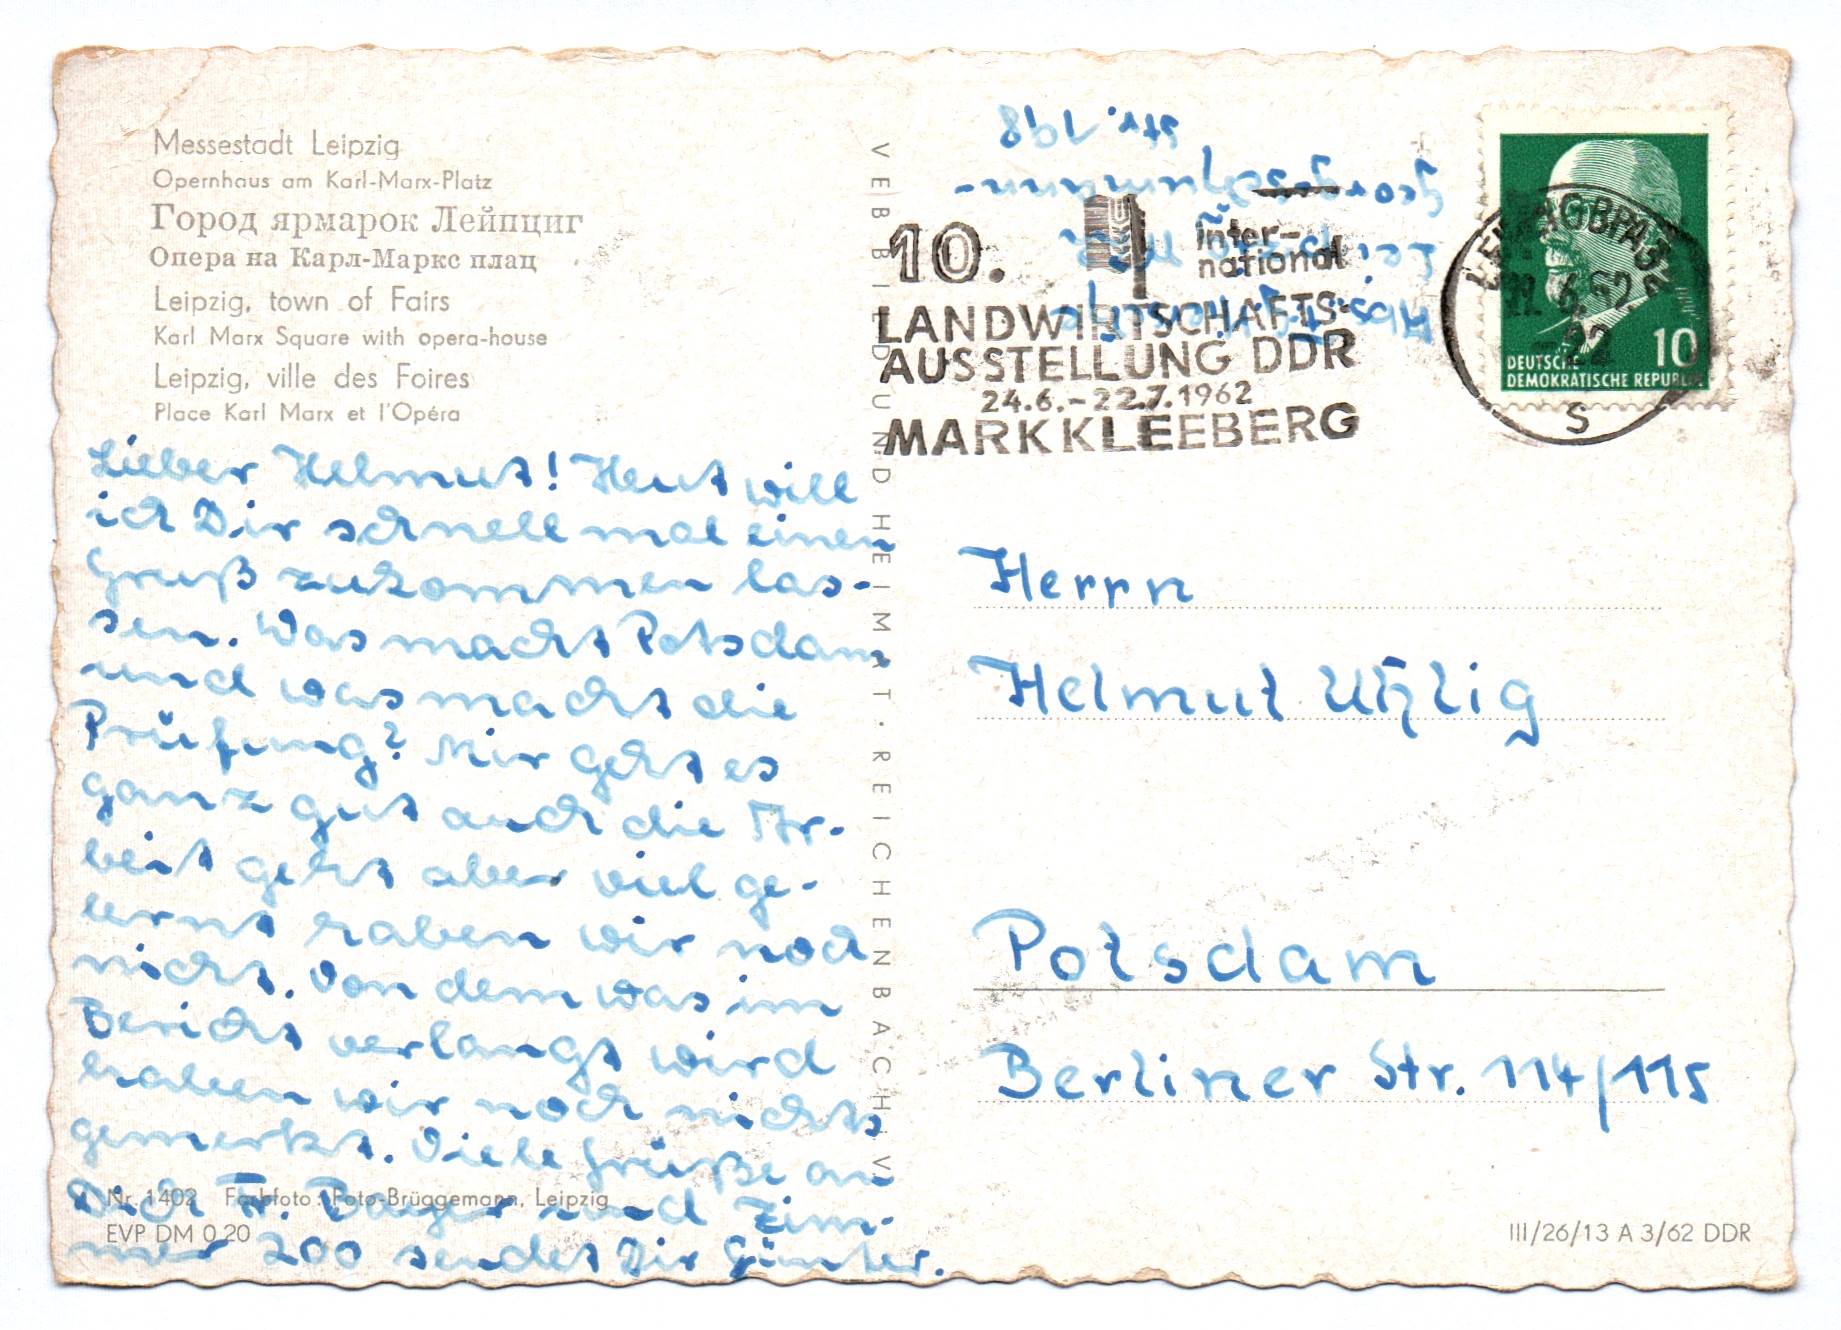 Messestadt Leipzig
Opernhaus am Karl-Marx-Platz
Город ярмарок Лейпциг
Опера на Карл-Маркс плац
Leipzig, town of Fairs
Karl Marx Square with opera-house
Leipzig, ville des Foires
Place Karl Marx et l'Opéra
Lieber Helmut! Heut will
ich Dir schnell mal einen
Gruß zukommen las-
sen. Was macht Potsdam
und was macht die
Prüfung? Mir geht es
ganz gut auch die Ar-
beit geht aber viel ge-
lernt haben wir noch
nicht. Von dem was im
Bericht verlangt wird
haben wir noch nichts
gemerkt. Viele Grüße an
Dich Fr. und Zim-
mer 200 sendet Dir Günter.
Nr. 1402 Farbfoto: Foto-Brüggemann, Leipzig
EVP DM 0.20
VEB BILD UND HEIMAT · REICHENBACH V
Abs.
Leipzig
Georg-Schumann-
Str. 198
10.
inter-
national
LANDWIRTSCHAFTS-
AUSSTELLUNG DDR
24.6.-22.7.1962
MARKKLEEBERG
6.62
22
S
10
DEUTSCHE
DEMOKRATISCHE REPUBLIK
Herrn
Helmut Uhlig
Potsdam
Berliner Str. 114/115
III/26/13 A 3/62 DDR